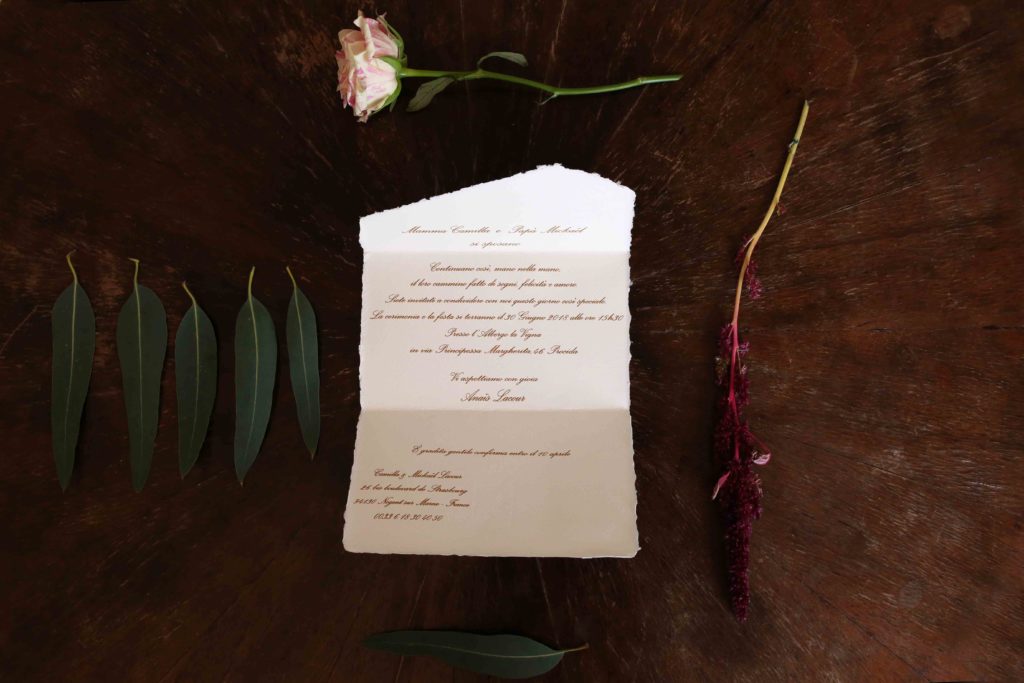 Mamma Camilla e Papà Michaël
si sposano
Continuano così, mano nella mano,
il loro cammino fatto di sogni, felicità e amore
Siete invitati a condividere con noi questo giorno così speciale.
La cerimonia e la festa si terranno il 30 Giugno 2018 alle ore 15h30
Presso l'Albergo la Vigna
in via Principessa Margherita, 46 Procida
Vi aspettiamo con gioia
Anaïs Lacour
E gradita gentile conferma entro il 10 aprile
Camilla & Michaël Lacour
26 bis boulevard de Strasbourg
94130 Nogent sur Marne - France
0033 6 18 30 40 50